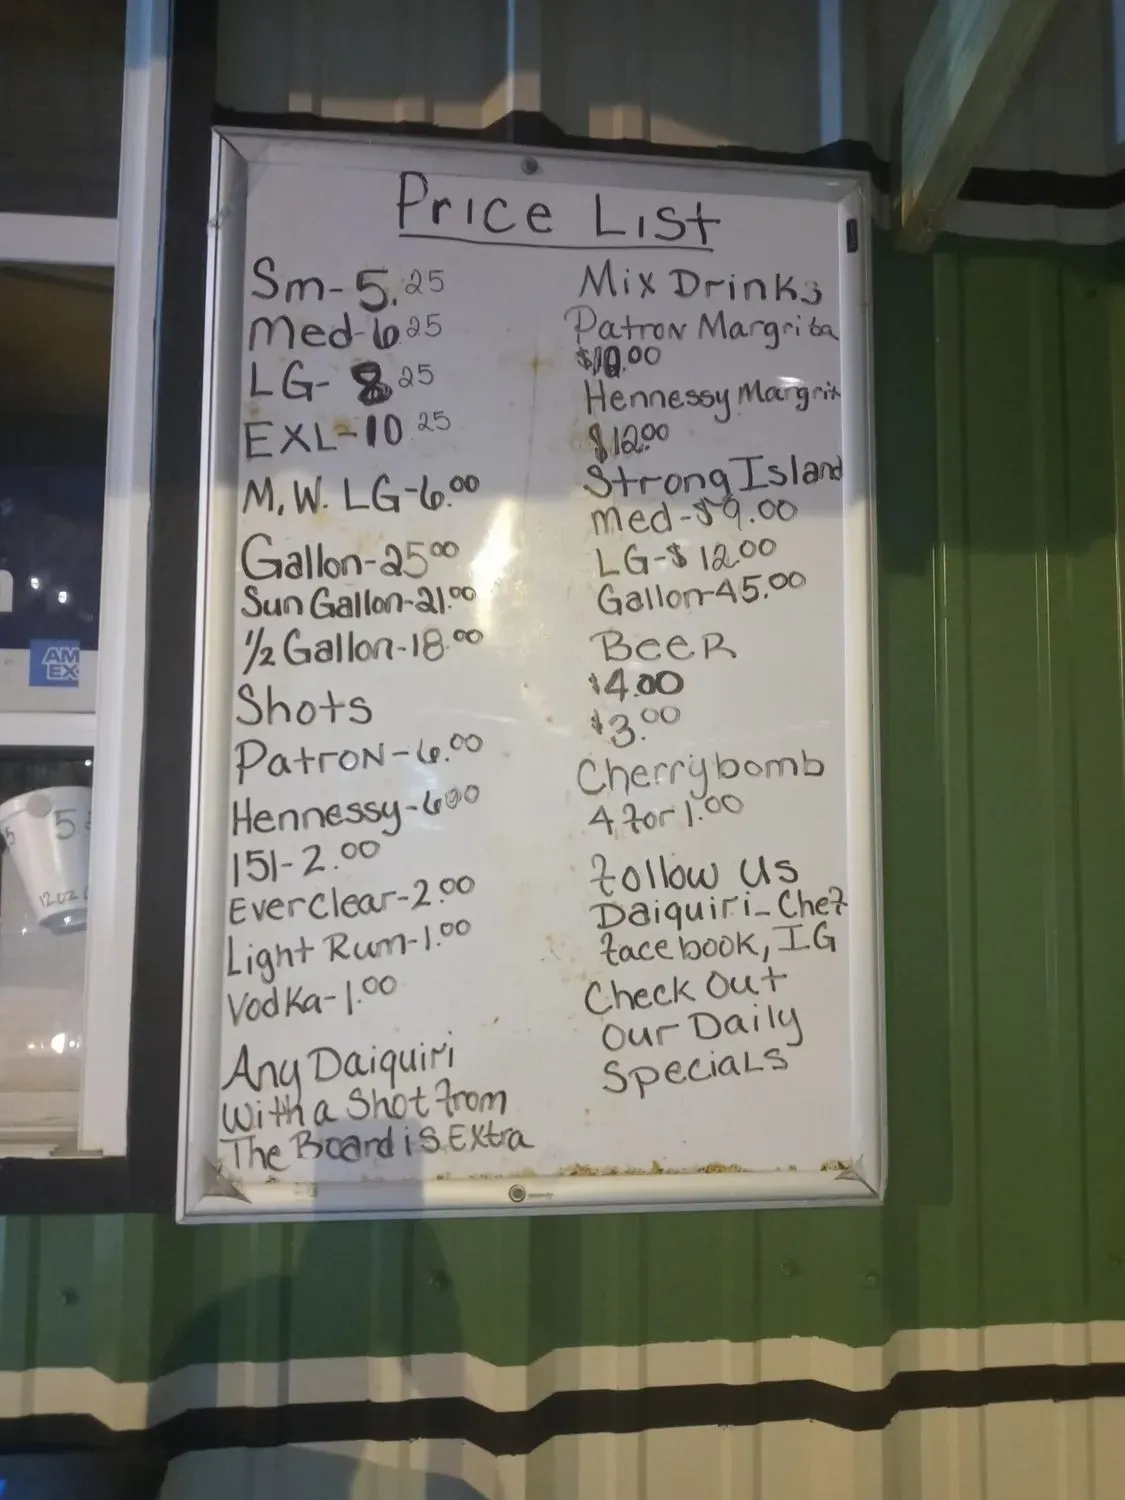 Price List
Sm-5.25
Med-6.25
LG-8.25
EXL-10.25
M.W. LG-6.00
Gallon-25.00
Sun Gallon-21.00
1/2 Gallon-18.00
Shots
Patron-6.00
Hennessy-6.00
151-2.00
Everclear-2.00
Light Rum-1.00
Vodka-1.00
Any Daiquiri
With a Shot from
The Board is Extra
Mix Drinks
Patron Margrita
$10.00
Hennessy Margrit
$12.00
Strong Island
Med-$9.00
LG-$12.00
Gallon-45.00
Beer
$4.00
$3.00
Cherrybomb
4 for 1.00
Follow Us
Daiquiri_Chef
Facebook, IG
Check Out
Our Daily
Specials
AM
EX
5
12oz